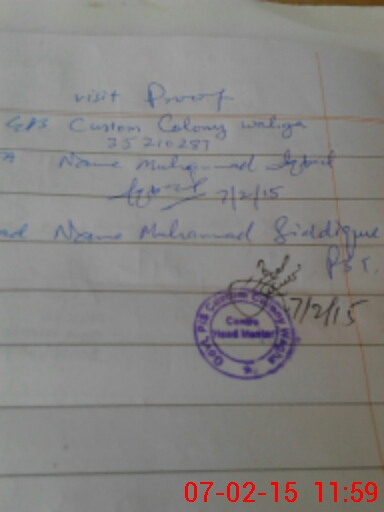 visit Proof
GPS Custom Colony wahga
35210287
A Name Muhammad Iqbal
7/2/15
Name Muhammad Siddique
PST.
7/2/15
Govt. P/S Custom Colony Wagha
Centre
Head Master
07-02-15 11:59